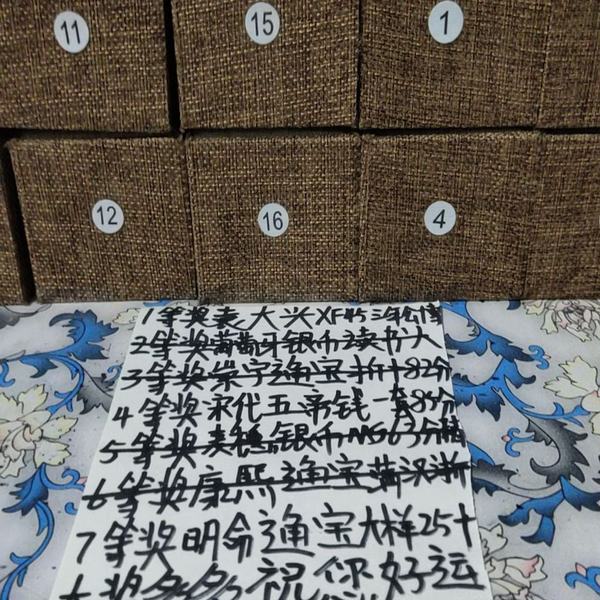 11 15 1
12 16 4
1等奖袁大头XF45三年公博
2等奖葡萄牙银币读书人
3等奖崇宁通宝折十82分
4等奖宋代五帝钱一套85分
5等奖麦穗银币MS63分
6等奖康熙通宝满汉浙
7等奖明命通宝大样25十
大奖多多祝你好运